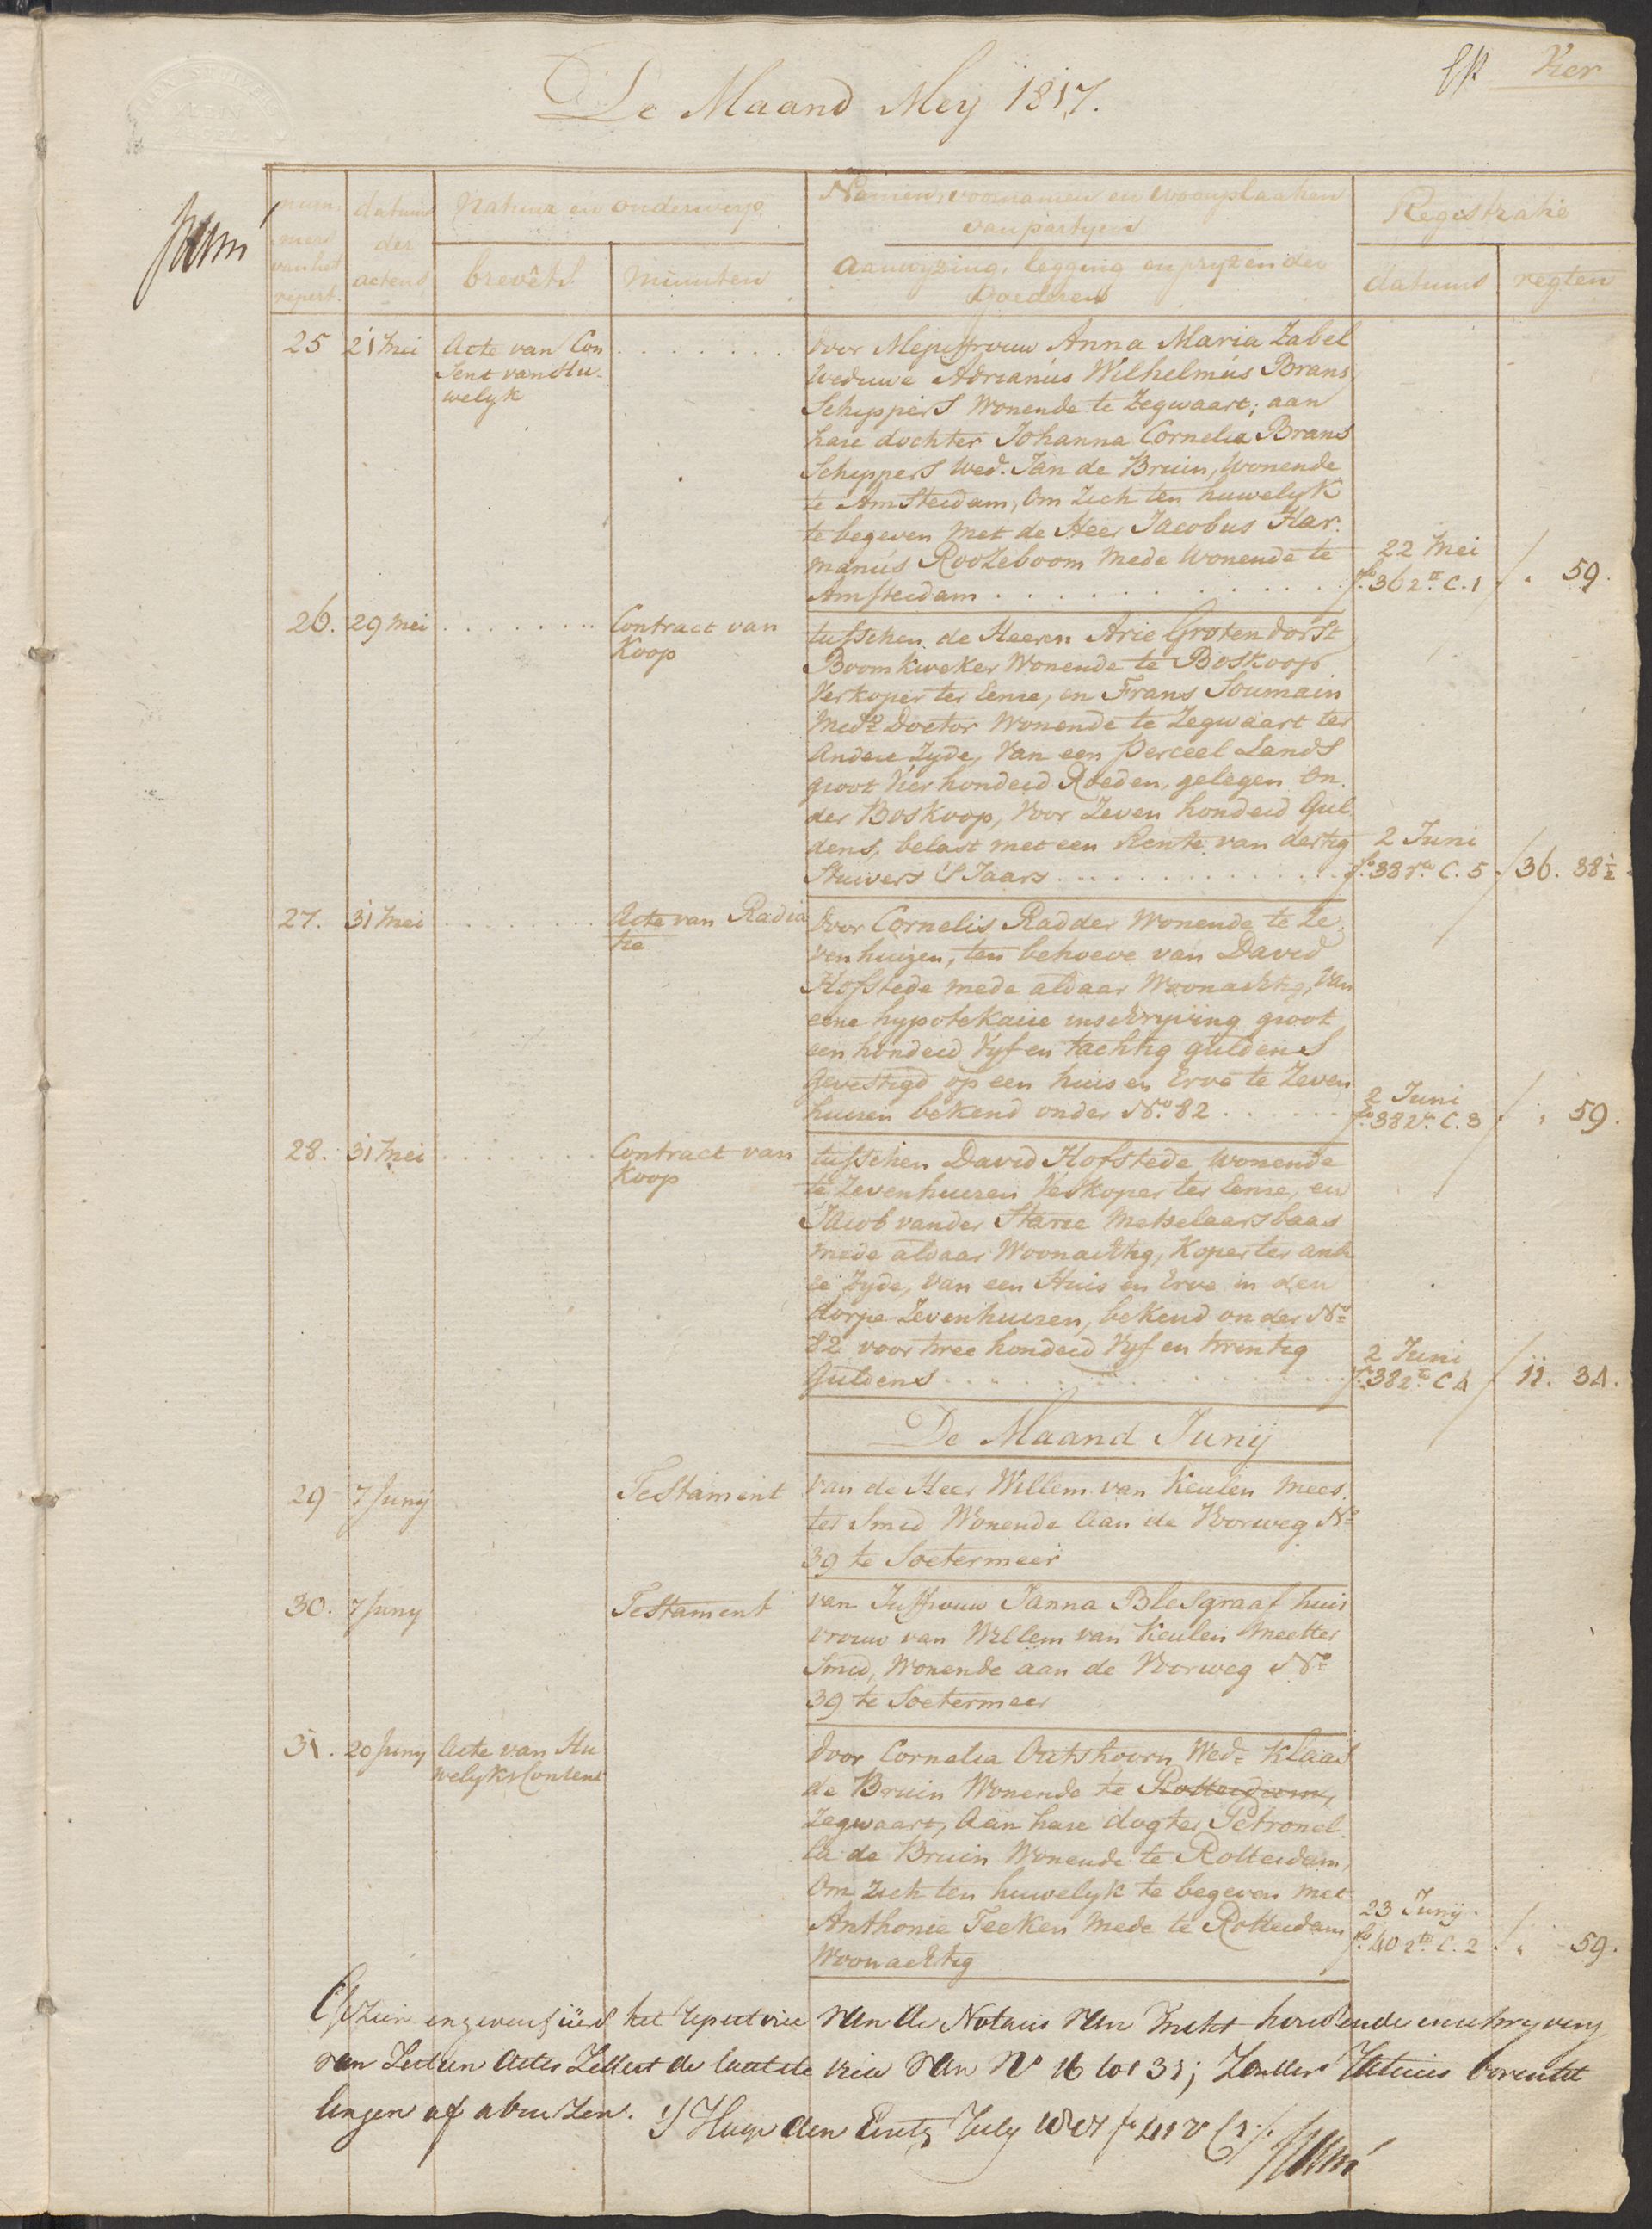 Vier
De Maand Meij 1817.
num-
mers
van het
repert.
datums
der
actens
Natuur en onderwerp
brevêts
minuten
Namen, voornamen en woonplaatsen
van partyen
aanwyzing, legging en pryzen der
Goederens
Registratie
datums
regten
25 21 Mei Acte van Con . . . . . . . Door Mejuffrouw Anna Maria Zabel
sent van Hu- Weduwe Adrianús Wilhelmús Brans
welyk Schippers Wonende te Zegwaart; aan
hare dochter Johanna Cornelia Brans
Schippers Wed. Jan de Bruin, Wonende
te Amsteldam, Om zich ten huwelyk
te begeven met de Heer Jacobus Har-
manús Roozeboom mede wonende te 22 Mei
Amsteldam . . . . . . . . . . . fo. 36 C. 1 " 59.
26. 29 Mei . . . . . . . Contract van tusschen de Heeren Arie Grotendorst
Koop Boomkweker Wonende te Boskoop
Verkoper ter Eenre, en Frans Soumain
Med. Doctor Wonende te Zegwaart ter
Andere Zyde, Van een perceel Lands
groot Vier honderd Roeden, gelegen On-
der Boskoop, Voor Zeven honderd Gul
dens, belast met een Rente van dertig 2 Juni
Stuivers 'S Jaars . . . . . . . . . . fo. 38 C. 5 36. 38½
27. 31 Mei . . . . . . . Acte van Radia Door Cornelis Radder Wonende te Ze-
tie venhuizen, ten behoeve van David
Hofstede mede aldaar Woonachtig, Van
eene hypotekaire inschryving groot
een honderd Vyf en tachtig guldens
Gevestigd op een huis en Erve te Zeven
huizen bekend onder No. 82 . . . . . . 2 Juni
fo. 38 C. 3 " 59.
28. 31 Mei . . . . . . . Contract van tusschen David Hofstede Wonende
Koop te Zevenhuizen Verkoper ter Eenre, en
Jacob vander Starre Metselaarsbaas
mede aldaar Woonachtig, Koper ter ande
re Zyde, Van een Huis en Erve in den
dorpe Zevenhuizen, bekend onder No.
82 voor twee honderd Vyf en twintig 2 Juni
Guldens . . . . . . . . . . . . fo. 38 C 4 11. 34.
De Maand Junij
29 7 Junij Testament Van de Heer Willem van Keulen Mees-
ter Smid Wonende Aan de Voorweg No.
39 te Soetermeer
30. 7 Juny Testament van Juffrouw Janna Blesgraaf huis
vrouw van Willem van Keulen Meester
Smid, Wonende aan de Voorweg No.
39 te Soetermeer
31. 20 Juny Acte van Hu Door Cornelia Outshoorn Wed. Klaas
welyks Consent de Bruin Wonende te Rotterdam,
Zegwaart, Aan hare dogter Petronel-
la de Bruin Wonende te Rotterdam,
Om Zich ten huwelyk te begeven met
Anthonie Teeken Mede te Rotterdam 23 Junij
Woonachtig fo. 40 C. 2 " 59.
Gezien en het repertoire van de Notaris van houdende inschryving
van Zestien Actes Zedert de laatste visa van No 16 tot 31; Zonder
lingen of abuizen. 'S Hage den Eersten July